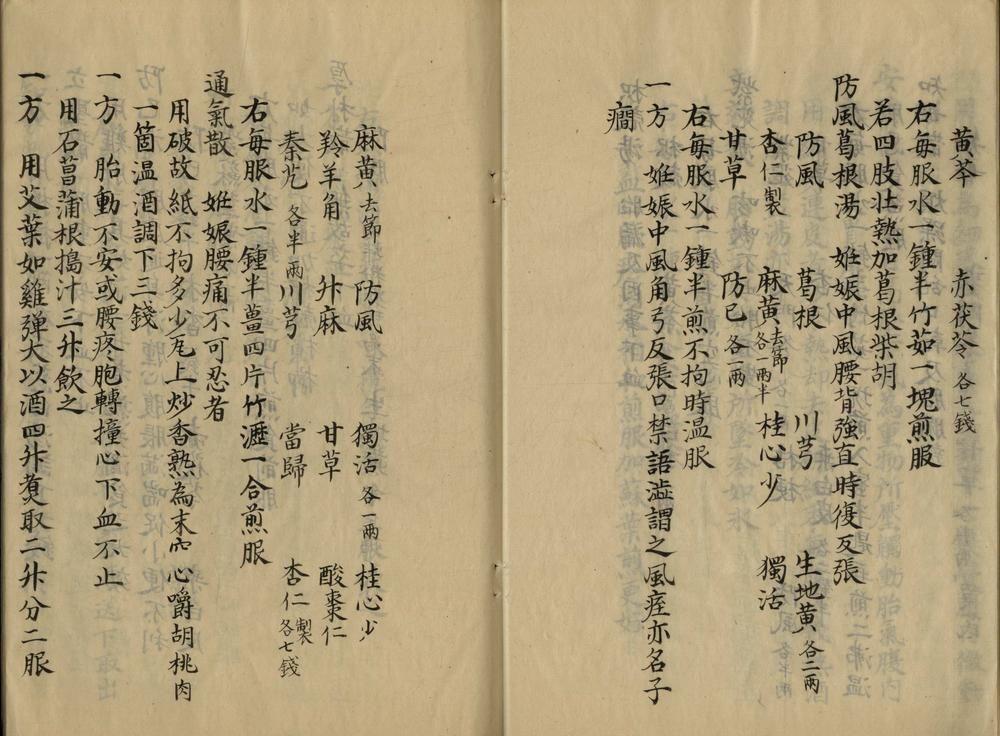 黄芩 赤茯苓各七錢
右每服水一鍾半竹茹一塊煎服
若四肢壯熱加葛根柴胡
防風葛根湯 姙娠中風腰背強直時復反張
防風 葛根 川芎 生地黄各二兩
杏仁製 麻黄去節各一兩半 桂心少 獨活
甘草 防已各一兩
右每服水一鐘半煎不拘時温服
一方 姙娠中風角弓反張口禁語澁謂之風痓亦名子
癇
麻黄去節 防風 獨活各一兩 桂心少
羚羊角 升麻 甘草 酸棗仁
秦艽各半兩 川芎 當歸 杏仁製各七錢
右每服水一鍾半薑四片竹瀝一合煎服
通氣散 姙娠腰痛不可忍者
用破故紙不拘多少瓦上炒香熟為末空心嚼胡桃肉
一箇温酒調下三錢
一方 胎動不安或腰疼胞轉撞心下血不止
用石菖蒲根搗汁三升飲之
一方 用艾葉如雞彈大以酒四升煑取二升分二服